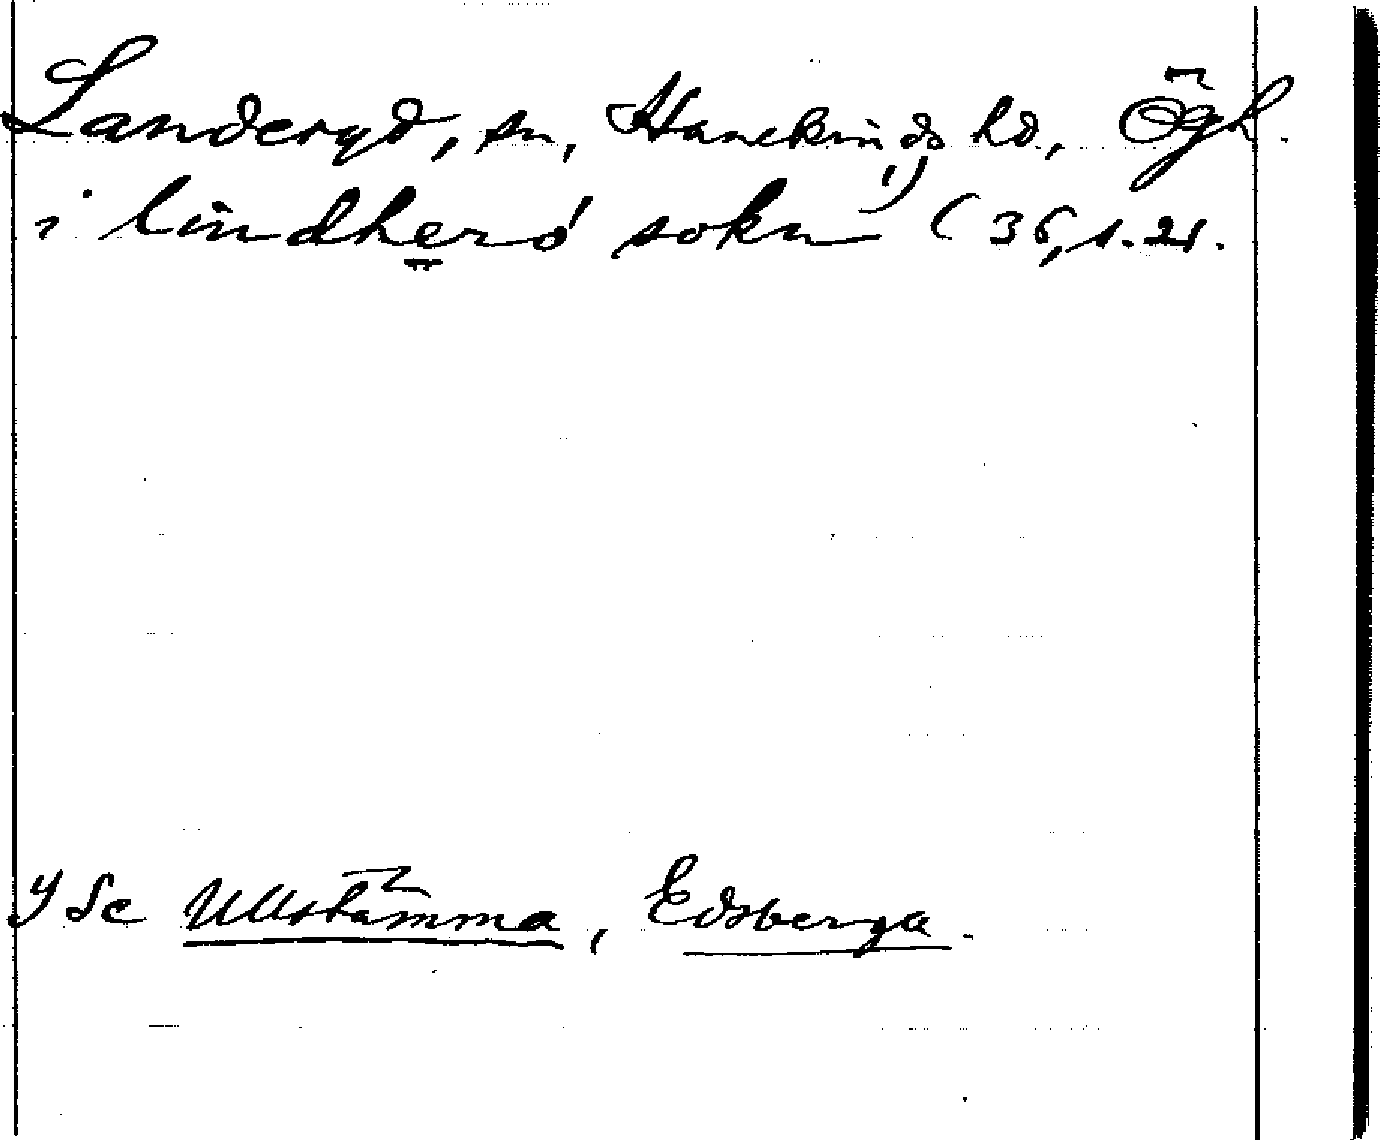 Landeryd, sn, Hanekinds hd, Ögl.
i lindherö sokn ¹) (36, s. 21.
¹) Se Ullstämma, Edsberga.